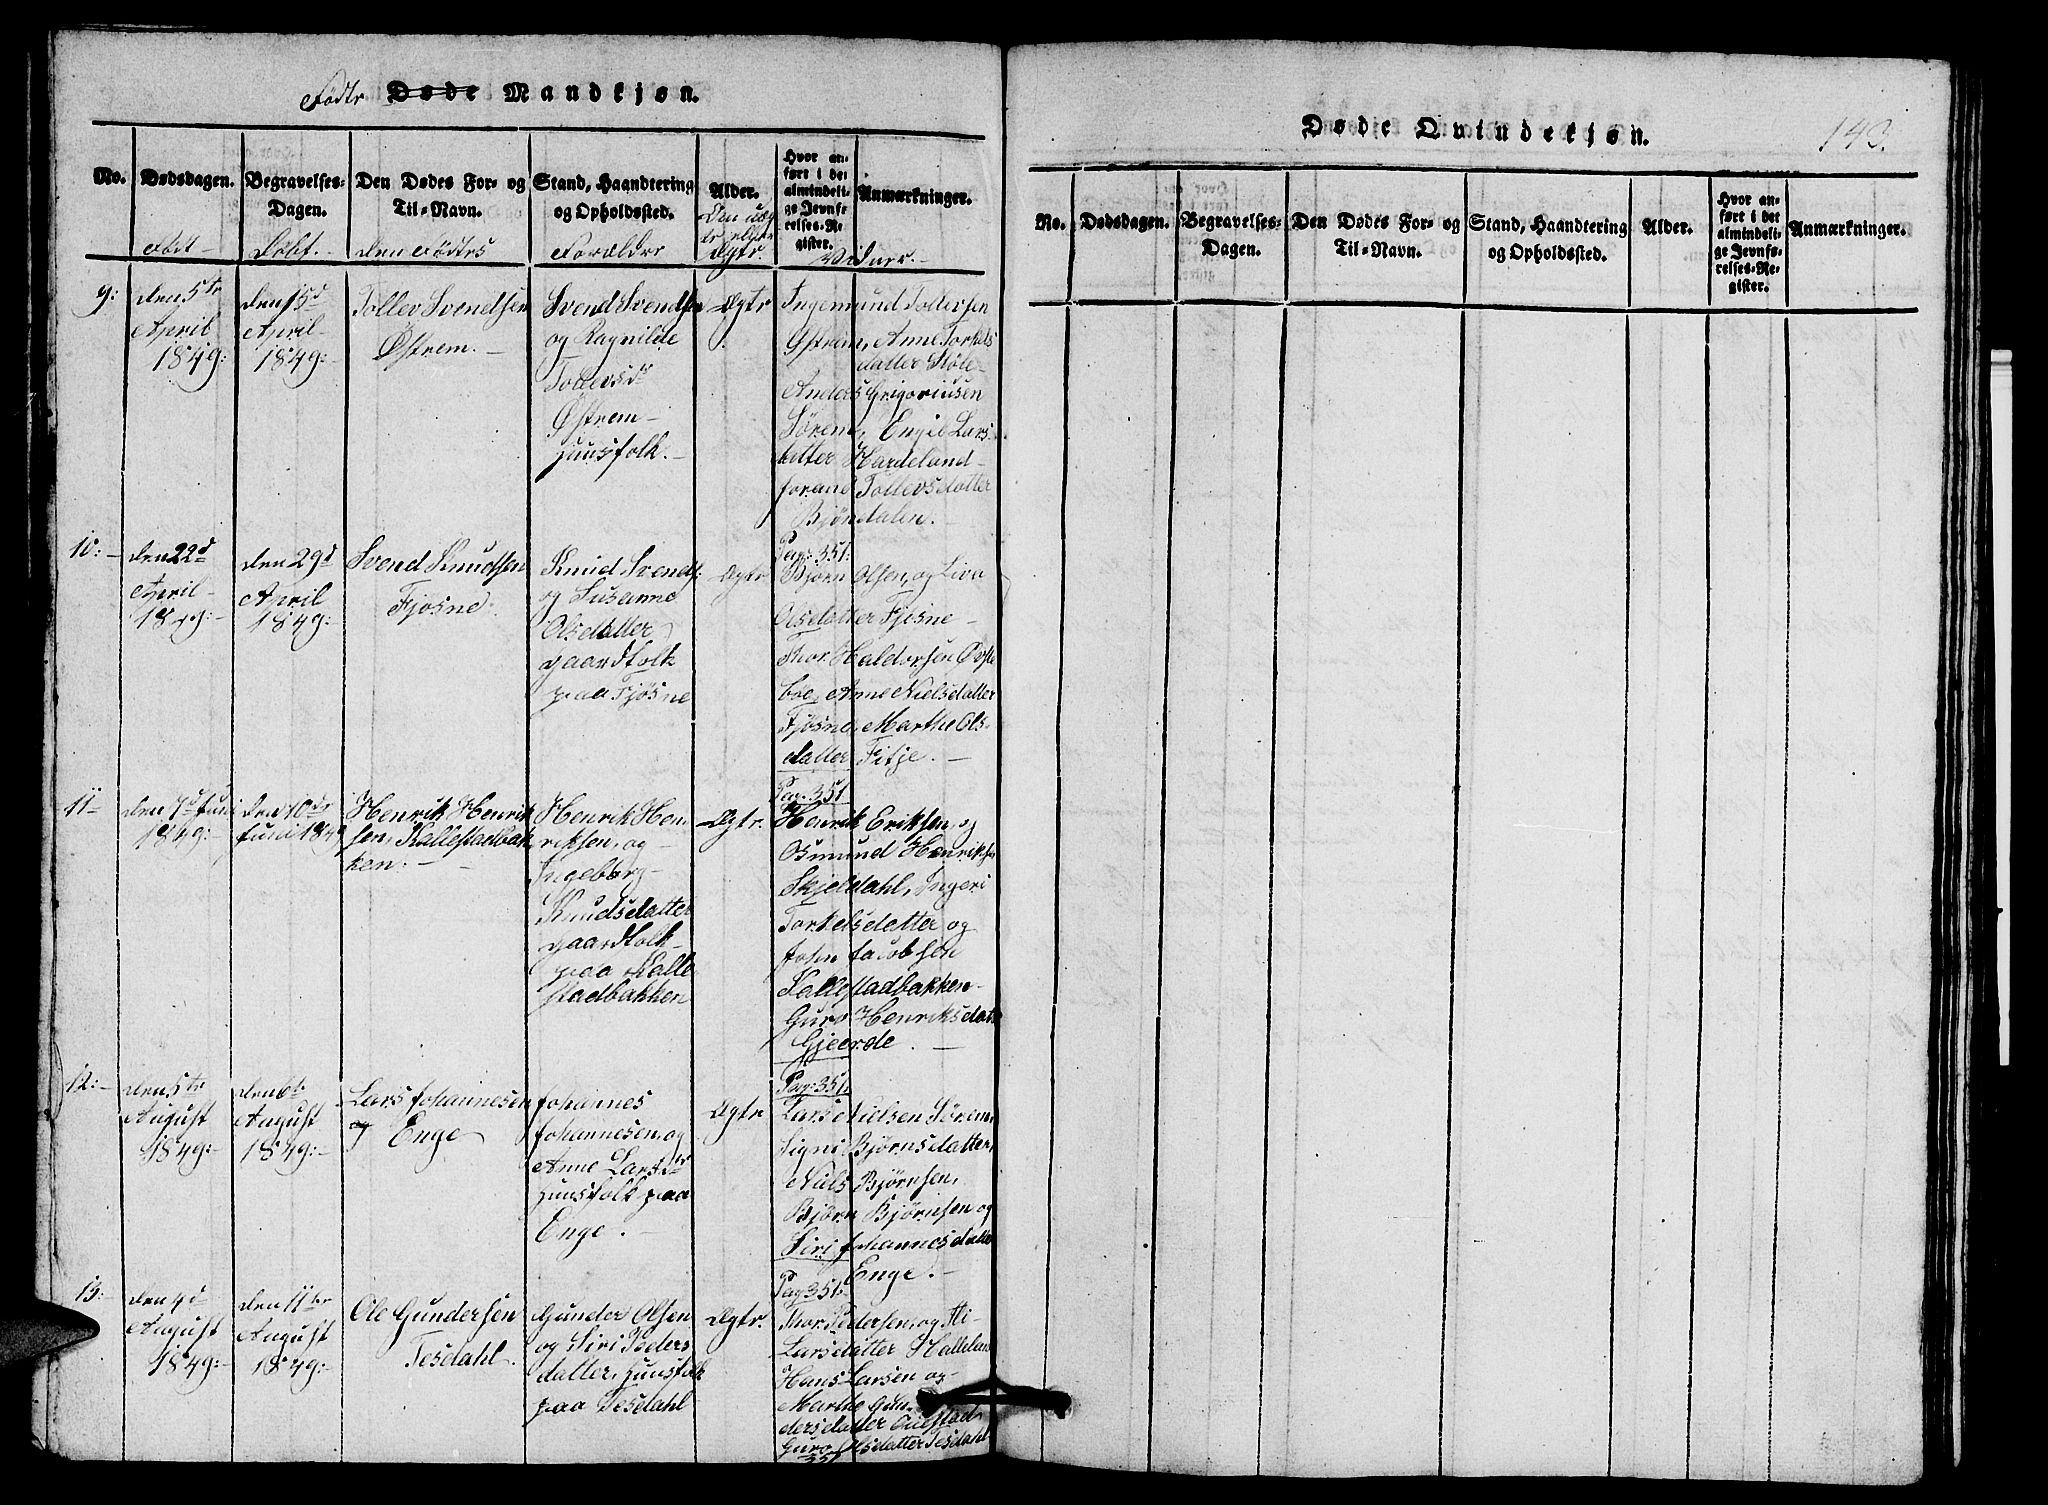 Fødte Døde Mandkjøn.
No.
Dødsdagen.
Begravelses-
Dagen.
Den Dødes For- og
Til-Navn.
Stand, Haandtering
og Opholdssted.
Alder.
Hvor an-
ført i det
almindeli-
ge Jevnfø-
relses-Re-
gister.
Anmærkninger.
Født
Døbt.
den Fødtes
Forældre
Den uæg-
te eller
Ægte.
Vidner.
9:
den 5te
April
1849:
den 15d
April
1849:
Tollev Svendsen
Østrem.
Svend Svendsen
og Ragnilde
Tollevsdr
Østrem
Huusfolk.
Ægte
Ingemund Tollefsen
Østrem, Anne Torkels
datter Støle
Anders Grigoriusen
Sørem, Engil Lars
datter Hardeland
Tollevsdatter
Bjøndalen.
Pag. 351:
10:
den 22d
April
1849:
den 29d
April
1849:
Svend Knudsen
Fjøsne
Knud Svends:
og Susanne
Olsdatter
gaardfolk
paa Fjøsne
Ægte
Bjørn Olsen, og Liva
Olsdatter Fjøsne
Thor Haldorsen Øvste
boe, Anne Nielsdatter
Fjøsne, Marthe Ols-
datter Fitje.
Pag. 351
11
den 7d Juni
1849:
den 10de
Juni 1849
Henrik Henrik
sen, Kallestadbak
ken.
Henrik Hen
riksen, og
Ingeborg
Knudsdatter
gaardfolk
paa Kalle
stadbakken
Ægte.
Henrik Eriksen, og
Osmund Henriksen
Skjeldahl, Ingeri
Torkelsdatter og
John Jacobsen
Kallestadbakken
Guro Henriksdatr
Gjeerde.
Pag: 351.
12:
den 5te
August
1849:
den 6te
August
1849:
Lars Johannesen
Enge
Johannes
Johannesen, og
Anne Larsdtr
Huusfolk paa
Enge.
Ægte
Lars Nielsen Sørem,
Signi Bjørnsdatter,
Niels Bjørnsen,
Bjørn Bjørnsen og
Siri Johannesdatter
Enge.
Pag 351.
13:
den 4d
August
1849:
den 11te
August
1849:
Ole Gundersen
Tesdahl.
Gunder Olsen
og Siri Peders
datter, Huusfolk
paa Tesdahl
Ægte.
Thor Pedersen, og
Larsdatter Halleland
Hans Larsen og
Marthe Gun
dersdatter
Guro Olsdatter Tesdahl
351
Døde Qvindekjøn.
143.
No.
Dødsdagen.
Begravelses-
Dagen.
Den Dødes For- og
Til-Navn.
Stand, Haandtering
og Opholdssted.
Alder.
Hvor an-
ført i det
almindeli-
ge Jevnfø-
relses-Re-
gister.
Anmærkninger.